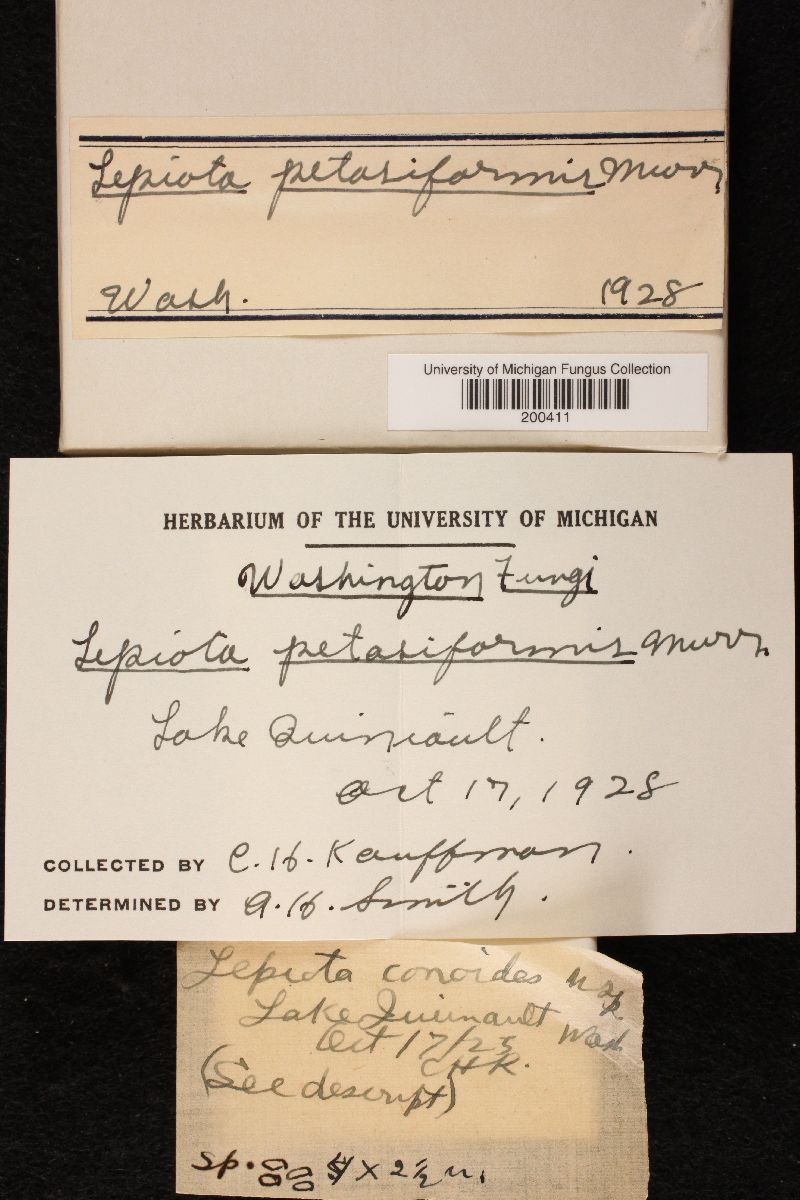 Lepiota petasiformis Murr.
Wash. 1928
University of Michigan Fungus Collection
200411
HERBARIUM OF THE UNIVERSITY OF MICHIGAN
Washington Fungi
Lepiota petasiformis Murr.
Lake Quiniault.
Oct 17, 1928
COLLECTED BY C. H. Kauffman.
DETERMINED BY A. H. Smith.
Lepiota conoides n sp.
Lake Quinault Wash
Oct 17/25
CHK.
(See descript)
sp. 4 x 2 1/2 u.